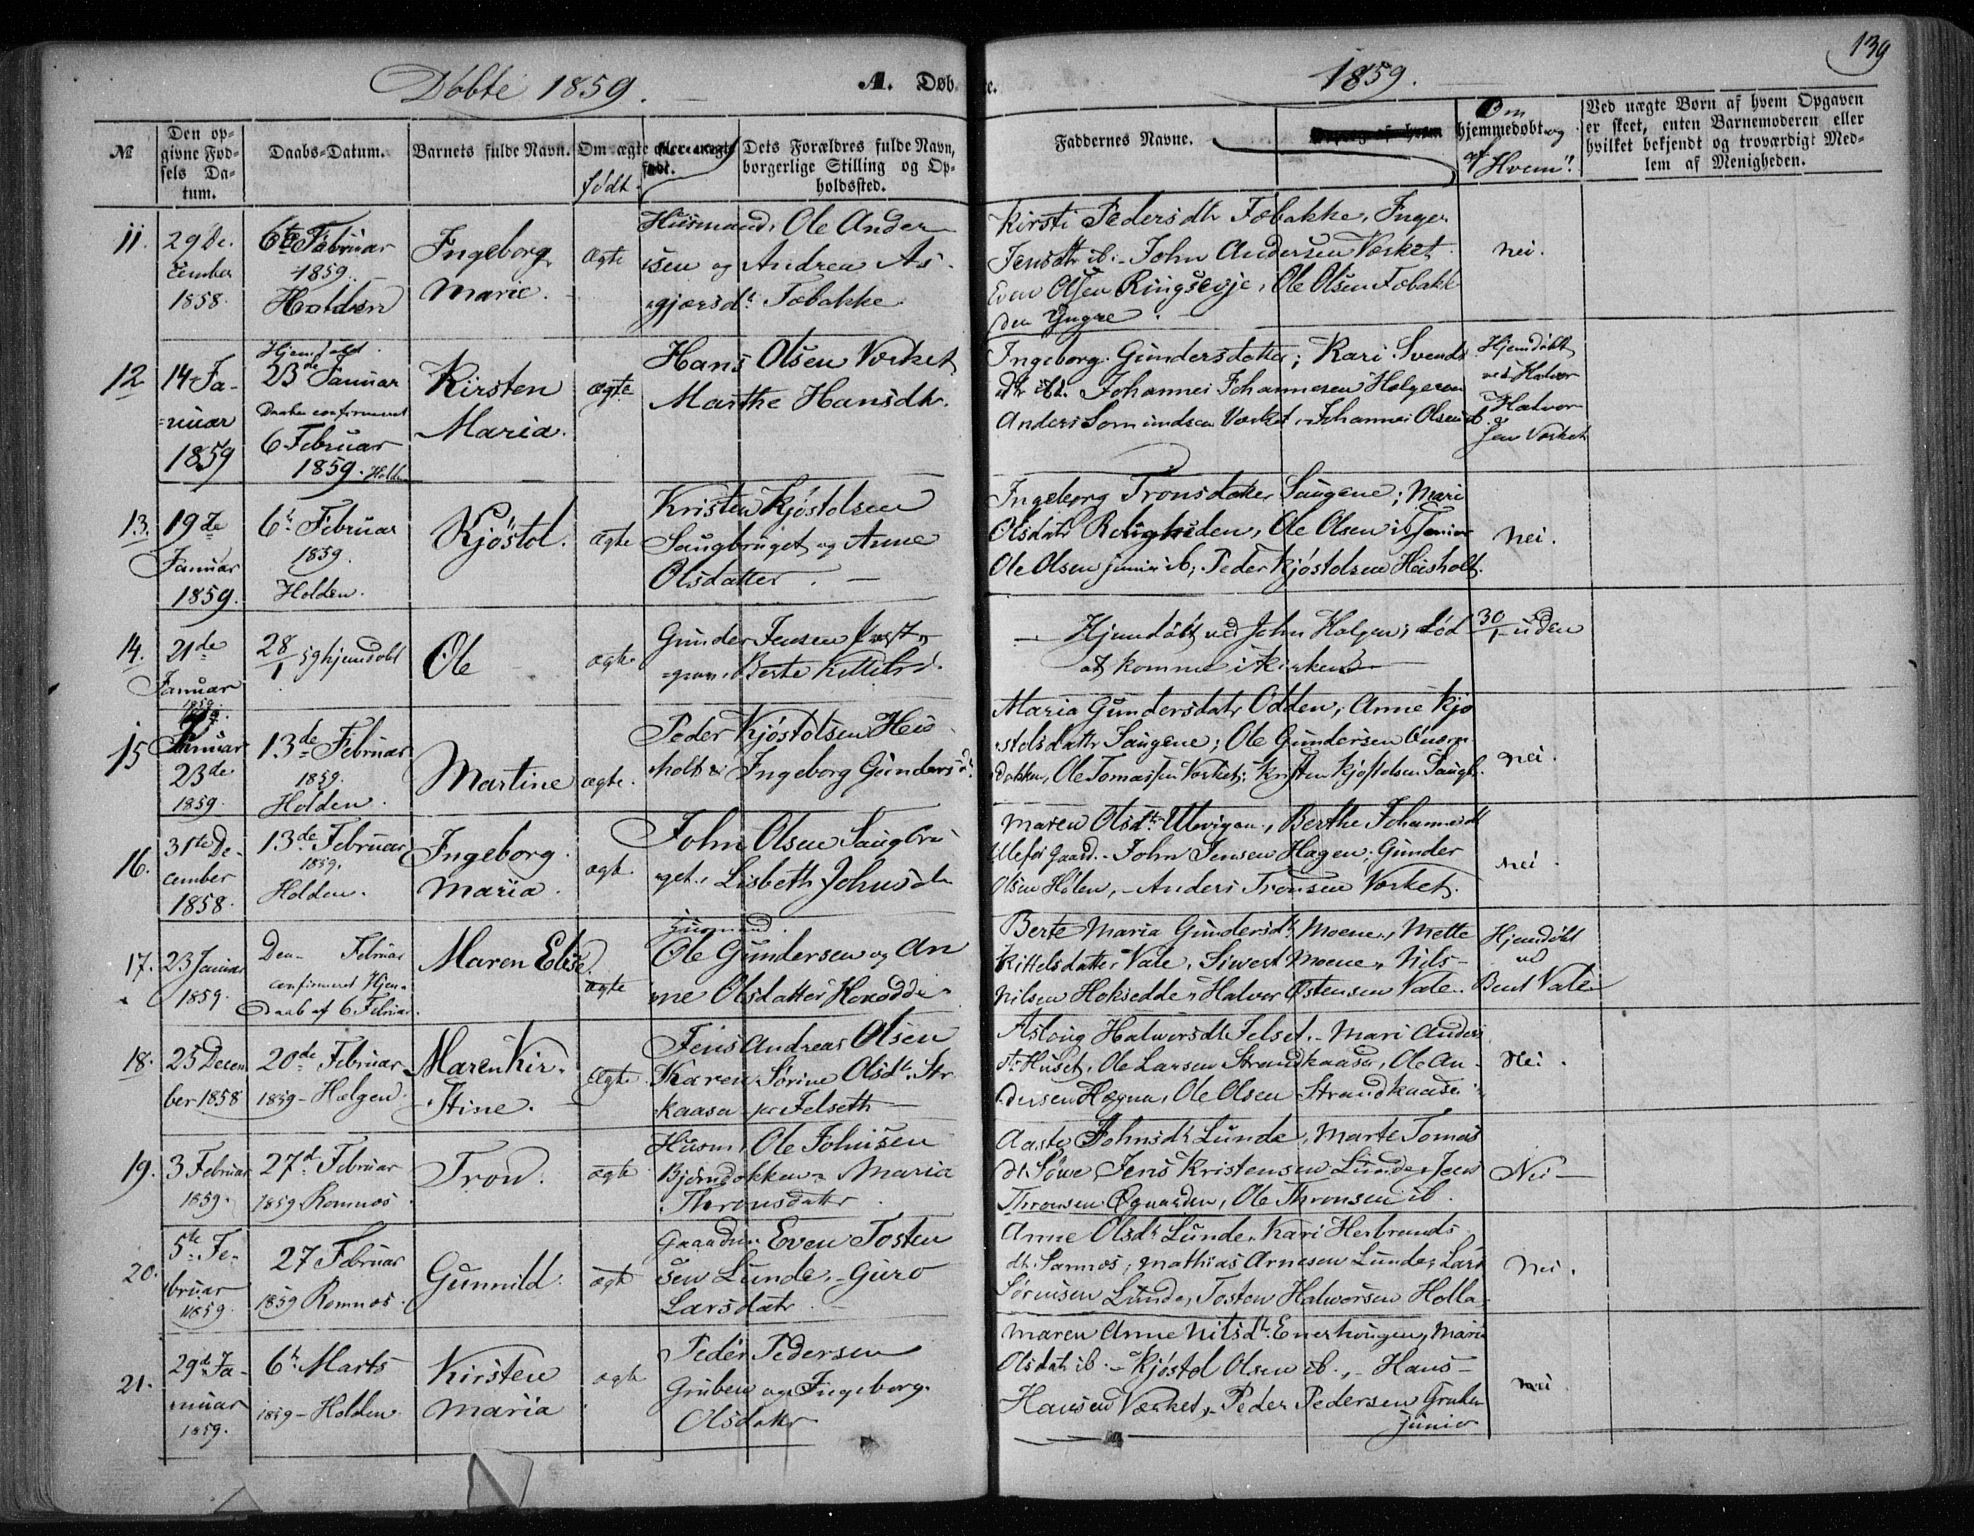 139
Döbte 1859.
A. Døb-
te.
1859.
№
Den op-
givne Fød-
sels Da-
tum.
Daabs-Datum.
Barnets fulde Navn.
Om ægte
født.
Dets Forældres fulde Navn,
borgerlige Stilling og Op-
holdssted.
Faddernes Navne.
Om
hjemmedøbt og
af Hvem?
Ved uægte Børn af hvem Opgaven
er skeet, enten Barnemoderen eller
hvilket bekjendt og troværdigt Med-
lem af Menigheden.
11.
29 De-
cember
1858.
6te Februar
1859.
Holden
Ingeborg
Marie.
ægte
Husmand, Ole Ander
sen og Andrea As-
gjersdr. Tobakke
Kirsti Pedersdtr Tobakke, Inger
Jensdtr ib. John Andersen Værket
Even Olsen Ringsevje, Ole Olsen Tobakk
den Yngre.
nei.
12
14 Ja-
nuar
1859
Hjemdøbt
23de Januar
Daaben confirmeret
6 Februar
1859. Holden
Kirsten
Maria.
ægte
Hans Olsen Værket
Marthe Hansdtr.
Ingeborg Gundersdatter; Kari Svends
dtr ibd. Johannes Johannesen Holgeren
Anders Somundsen Værket, Johannes Olsen ib.
Hjemdøbt
ved Halvor
Halvor
sen Værket
13.
19de
Januar
1859.
6te Februar
1859.
Holden.
Kjöstol.
ægte
Kristen Kjöstolsen
Saugbruget og Anne
Olsdatter.
Ingeborg Tronsdatter Saugene; Mari
Olsdatr Roligheden, Ole Olsen ib Senior
Ole Olsen junior ib; Peder Kjöstolsen Heisholt.
nei.
14.
21de
Januar
1859.
28/1 59 hjemdøbt
Ole
ægte
Gunder Jensen
Berte Kittilsd.
Hjemdöbt ved John Holgen; död 30/1 uden
at komme i Kirken
15
Januar
23de
1859.
13de Februar
1859.
Holden.
Martine
ægte.
Peder Kjöstolsen Heis
holt & Ingeborg Gundersd.
Maria Gundersdatr Odden, Anne Kjö
stolsdattr Saugene; Ole Gundersen Quærn
dokken, Ole Tomassen Værket; Kristen Kjöstolsen Saugb.
nei.
16.
31te De-
cember
1858.
13de Februar
1859.
Holden.
Ingeborg
Maria.
ægte
John Olsen Saugbru
get. Lisbeth Johnsdr
Maren Olsdtr Ulevigen, Berthe Johannesdtr
Ulefos Gaard. John Jensen Hagen; Gunder
Olsen Holen, Anders Tronsen Værket.
nei
17.
23 Januar
1859.
Den Februar
confirmeret Hjem-
Daab af 6 Februar
Maren Elise
ægte
Husmand.
Ole Gundersen og An
ne Olsdatter Hoxodde
Berte Maria Gundersdtr Moene, Mette
Kittelsdatter Vale, Siwert Moene, Nils
Nilsen Hoksedde, Halvor Østensen Vale
Hjemdöbt
ved
Bent Vale
18.
25 Decem
ber 1858
20de Februar
1859 - Helgen
Maren Kir-
stine.
ægte
Jens Andreas Olsen
Karen Sörine Olsdtr. Str
kaasa pr Felseth
Aslaug Halworsdtr Felset. Mari Anders
dtr Huset, Ole Larsen Strandkaasa, Ole An-
dersen Hægna, Ole Olsen Strandkaasa
nei.
19.
3 Februar
1859.
27d Februar
1859 Romnos
Tron.
ægte
Husm. Ole Johnsen
Björndokken Maria
Thronsdatter
Aaste Johnsdr Lunde, Marte Tomas
dt. Söwe, Jens Kristensen Lunde, Jens
Thronsen Øgaarden, Ole Thronsen ib.
Nei
20.
5te Fe-
bruar
1859.
27 Februar
1859 Romnos.
Gunnild.
ægte
Gaardm. Even Tosten
sen Lunde - Guro
Larsdatr.
Anne Olsdr Lunde, Kari Herbrands
dt. Samnos; Mathias Arnesen Lunde, Lars
Sörensen Lunde, Tosten Halworsen Holla
nei.
21.
29d Ja-
nuar
1859.
6te Marts
1859 - Holden
Kirsten
Maria
ægte
Peder Pedersen
Gruben og Ingeborg
Olsdatter
Maren Anne Nilsdtr. Enerhougen, Maria
Olsdatr ib. - Kjöstol Olsen ib., Hans
Hansen Værket, Peder Pedersen Gruben
junior
nei